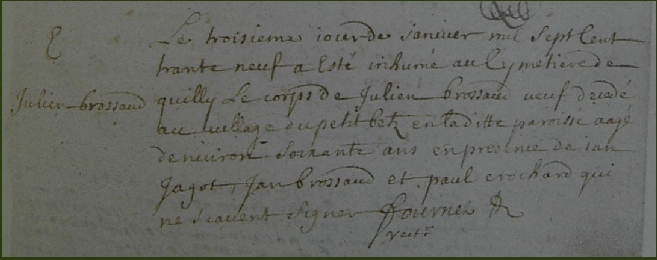 Le troisieme iour de Janvier mil sept cent
trante neuf a Esté inhumé au Cymetiere de
Julien brossaud
quilly Le corps de Julien brossaud veuf decedé
au village du petit betz en laditte paroisse aagé
denviron soixante ans en presence de ian
Jagot, Jan brossaud et paul crochard qui
ne scavent signer fournel
rectr